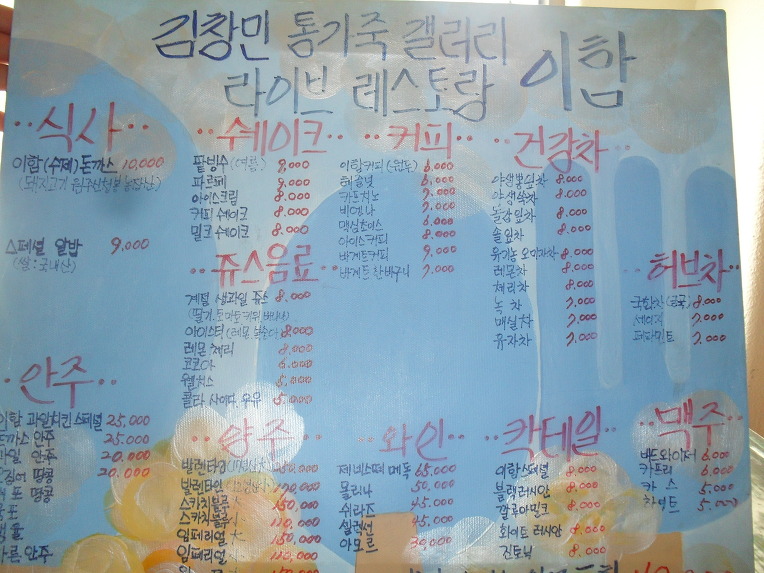 김창민 통기죽 갤러리
라이브 레스토랑 이함
식사
이함 (수제) 돈까스 10,000
스페셜 알밥 9.000
(쌀:국내산)
쉐이크
팥빙수 (여름) 9,000
파르페 9,000
아이스크림 8.000
커피 쉐이크 8.000
밀크 쉐이크 8.000
쥬스음료
계절 생과일 쥬스 8.000
아이스티 8.000
레몬 체리 8.000
코코아 6.000
웰치스 5.000
콜라 사이다. 우유 5.000
커피
이함커피 (원두) 6.000
헤즐넛 6.000
카푸치노 7.000
비엔나 7.000
맥심초이스 6.000
아이스커피 8.000
바게트커피 9.000
바게트 한바구니 7.000
건강차
야생뽕잎차 8.000
야생쑥차 8.000
솔잎차 8.000
유기농 오미자차 8.000
레몬차 8.000
체리차 8.000
녹차 7.000
매실차 7.000
유자차 7.000
허브차
국화차 8.000
세이지 7.000
페파민트 7.000
안주
이함 과일치킨 스페셜 25.000
돈까스 안주 25.000
과일 안주 20.000
땅콩 20.000
땅콩
마른 안주
양주
발렌타인
발렌타인
스카치블루 大 150,000
스카치블루 小 110,000
임페리얼 大 150,000
임페리얼 小 110,000
와인
메독 65.000
몰리나 50,000
쉬라즈 45.000
셀렉션 45.000
아모르 30,000
칵테일
이함스페셜 8,000
블랙러시안 8,000
깔루아밀크 8,000
화이트 러시안 8,000
진토닉 8,000
맥주
버드와이저 6.000
카프리 6.000
카스 5.000
하이트 5.000